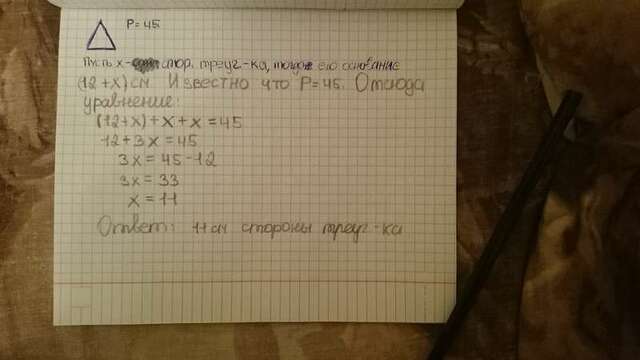 P = 45
Пусть x - стор. треуг-ка, тогда его основание
(12 + x) см Известно что P = 45. Отсюда
уравнение:
(12+x) + x + x = 45
12 + 3x = 45
3x = 45 - 12
3x = 33
x = 11
Ответ: 11 см стороны треуг-ка